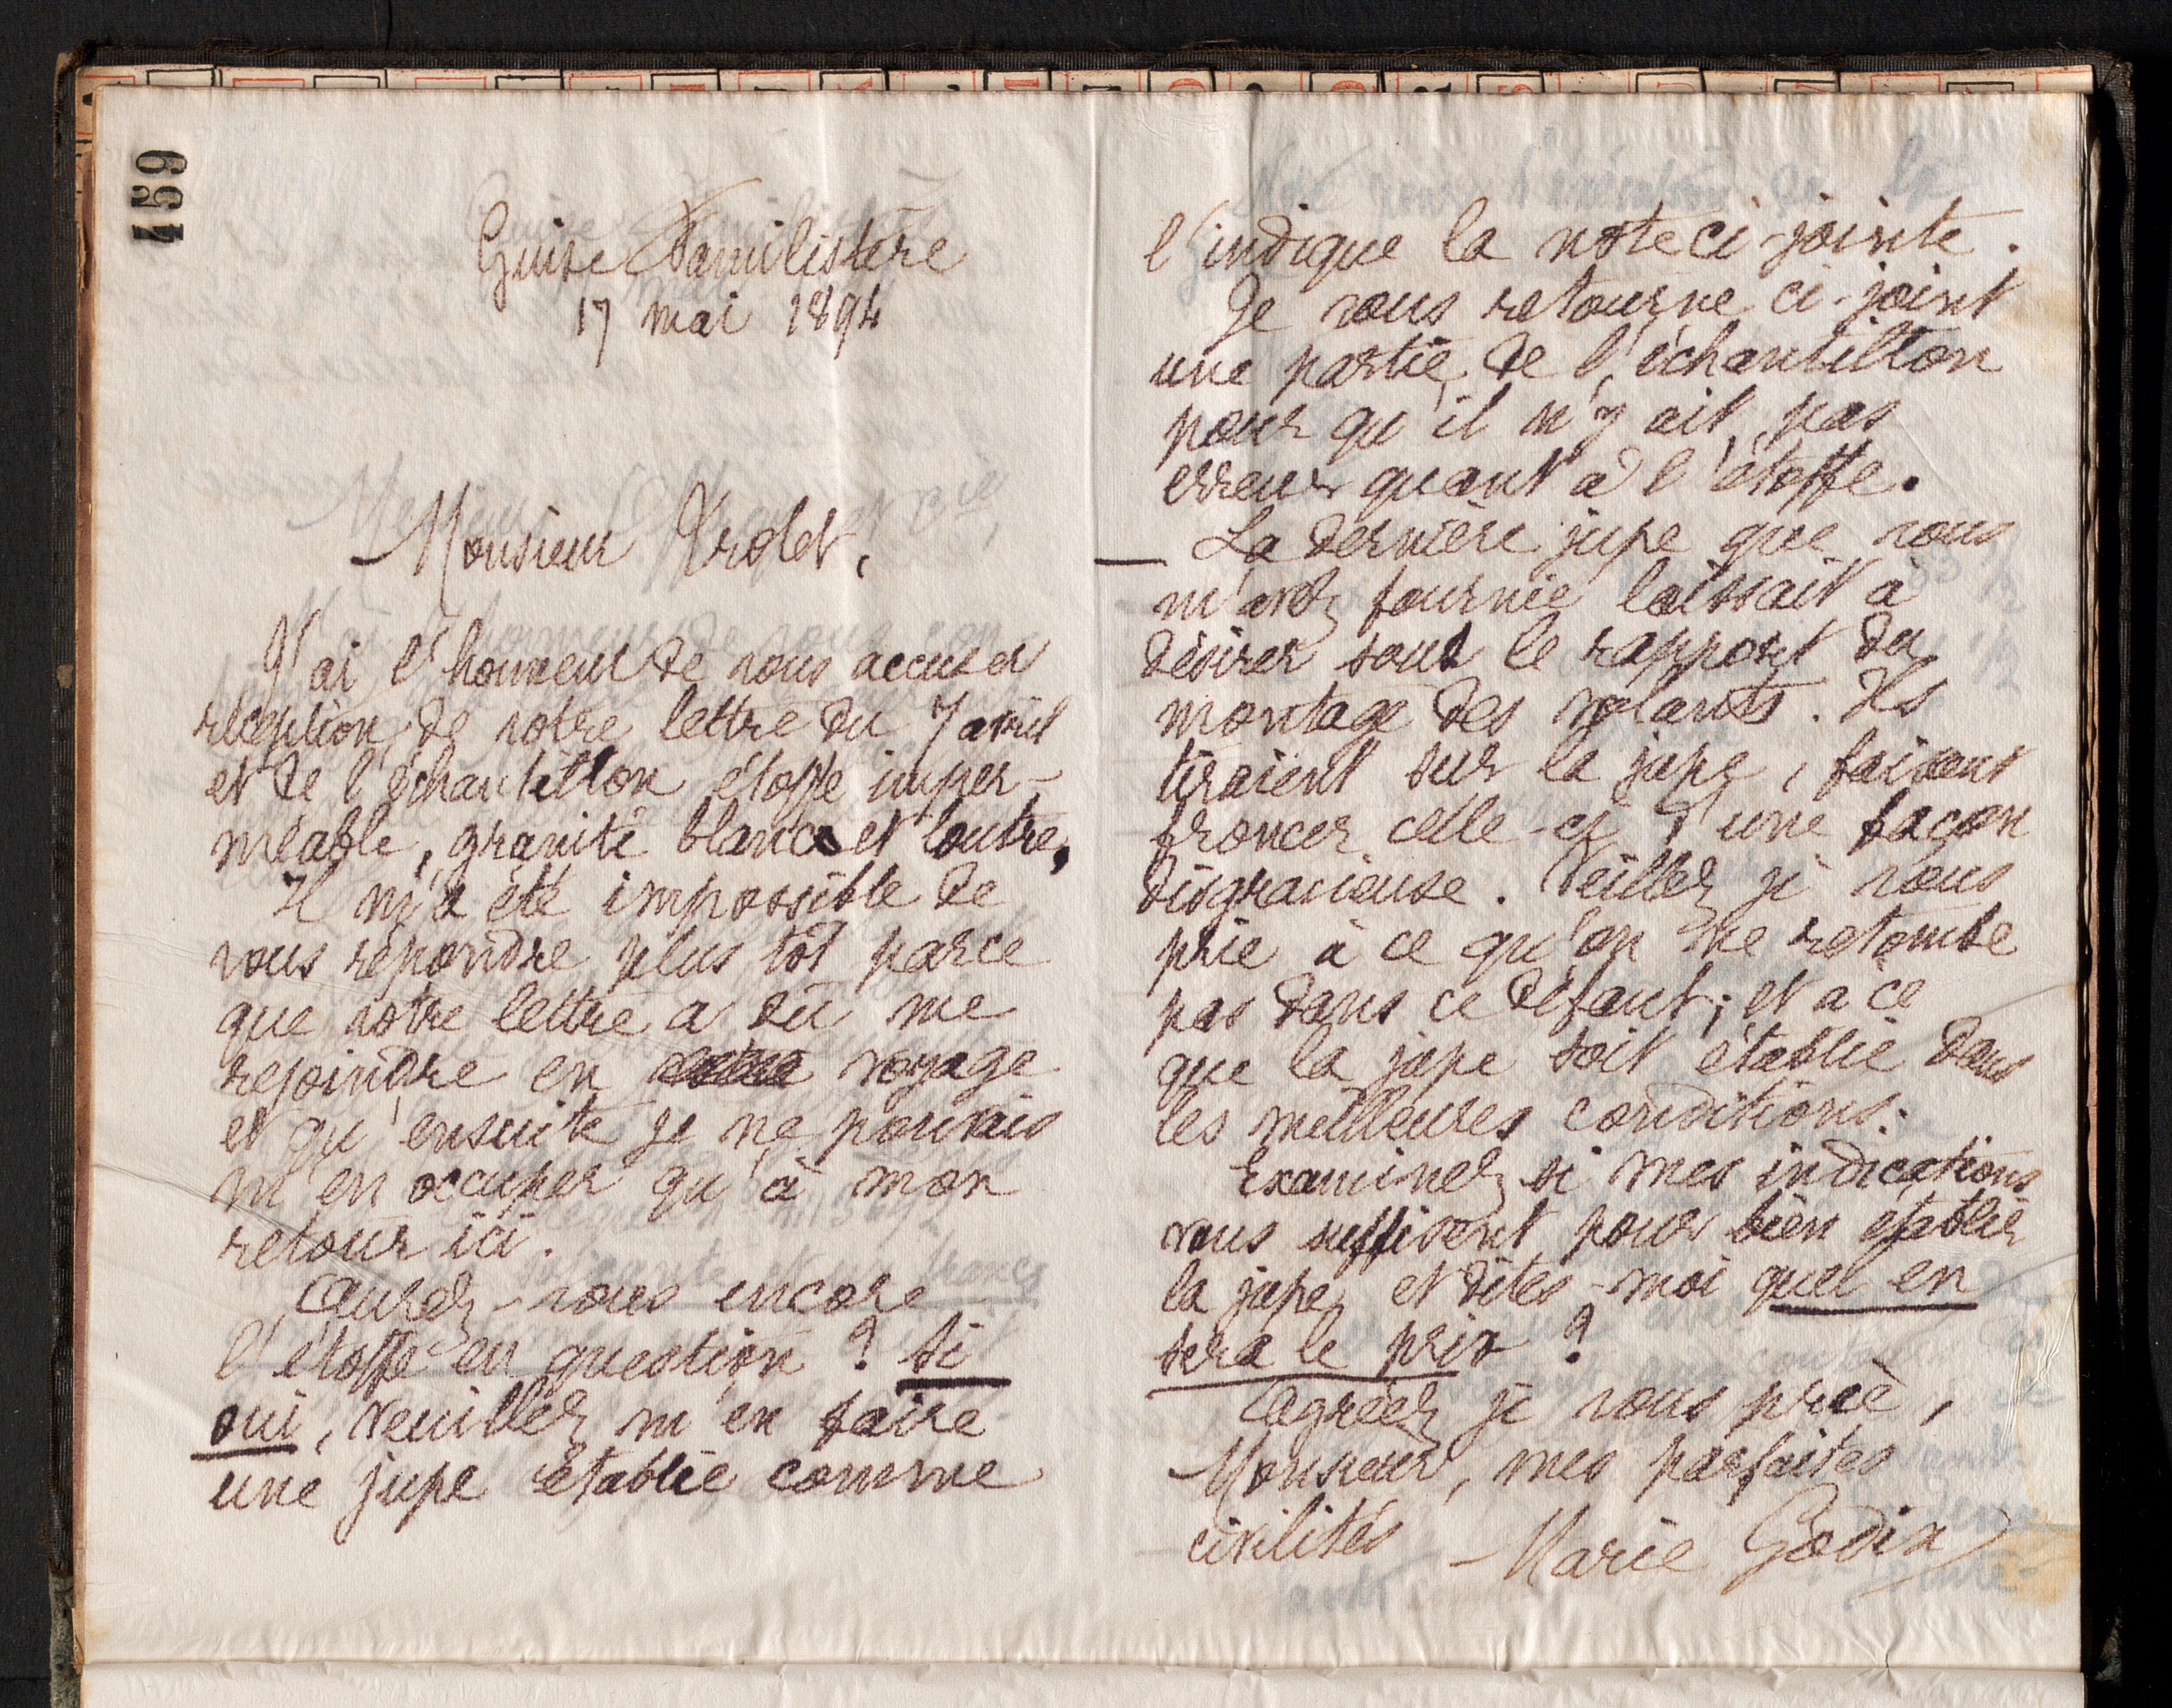 459
Guise Familistère
17 mai 1894
Monsieur
J'ai l'honneur de vous accuser
réception de votre lettre du 7 avril
et de l'échantillon étoffe imper-
méable, granité blanc et loutre,
Il m'a été impossible de
vous répondre plus tôt parce
que votre lettre a dû me
rejoindre en voyage
et qu'ensuite je ne pouvais
m'en occuper qu'à mon
retour ici.
Aurez-vous encore
l'étoffe en question ? Si
oui, veuillez m'en faire
une jupe établie comme
l'indique la note ci-jointe.
Je vous retourne ci-joint
une partie de l'échantillon
pour qu'il n'y ait pas
erreur quant à l'étoffe.
— La dernière jupe que vous
m'avez fournie laissait à
désirer sous le rapport du
montage des volants. Ils
tiraient sur la jupe, faisant
froncer celle-ci d'une façon
disgracieuse. Veillez je vous
prie à ce qu'on ne retombe
pas dans ce défaut ; et à ce
que la jupe soit établie dans
les meilleures conditions.
Examinez si mes indications
vous suffisent pour bien établir
la jupe, et dites-moi quel en
sera le prix ?
Agréez je vous prie,
Monsieur, mes parfaites
civilités Marie Godin